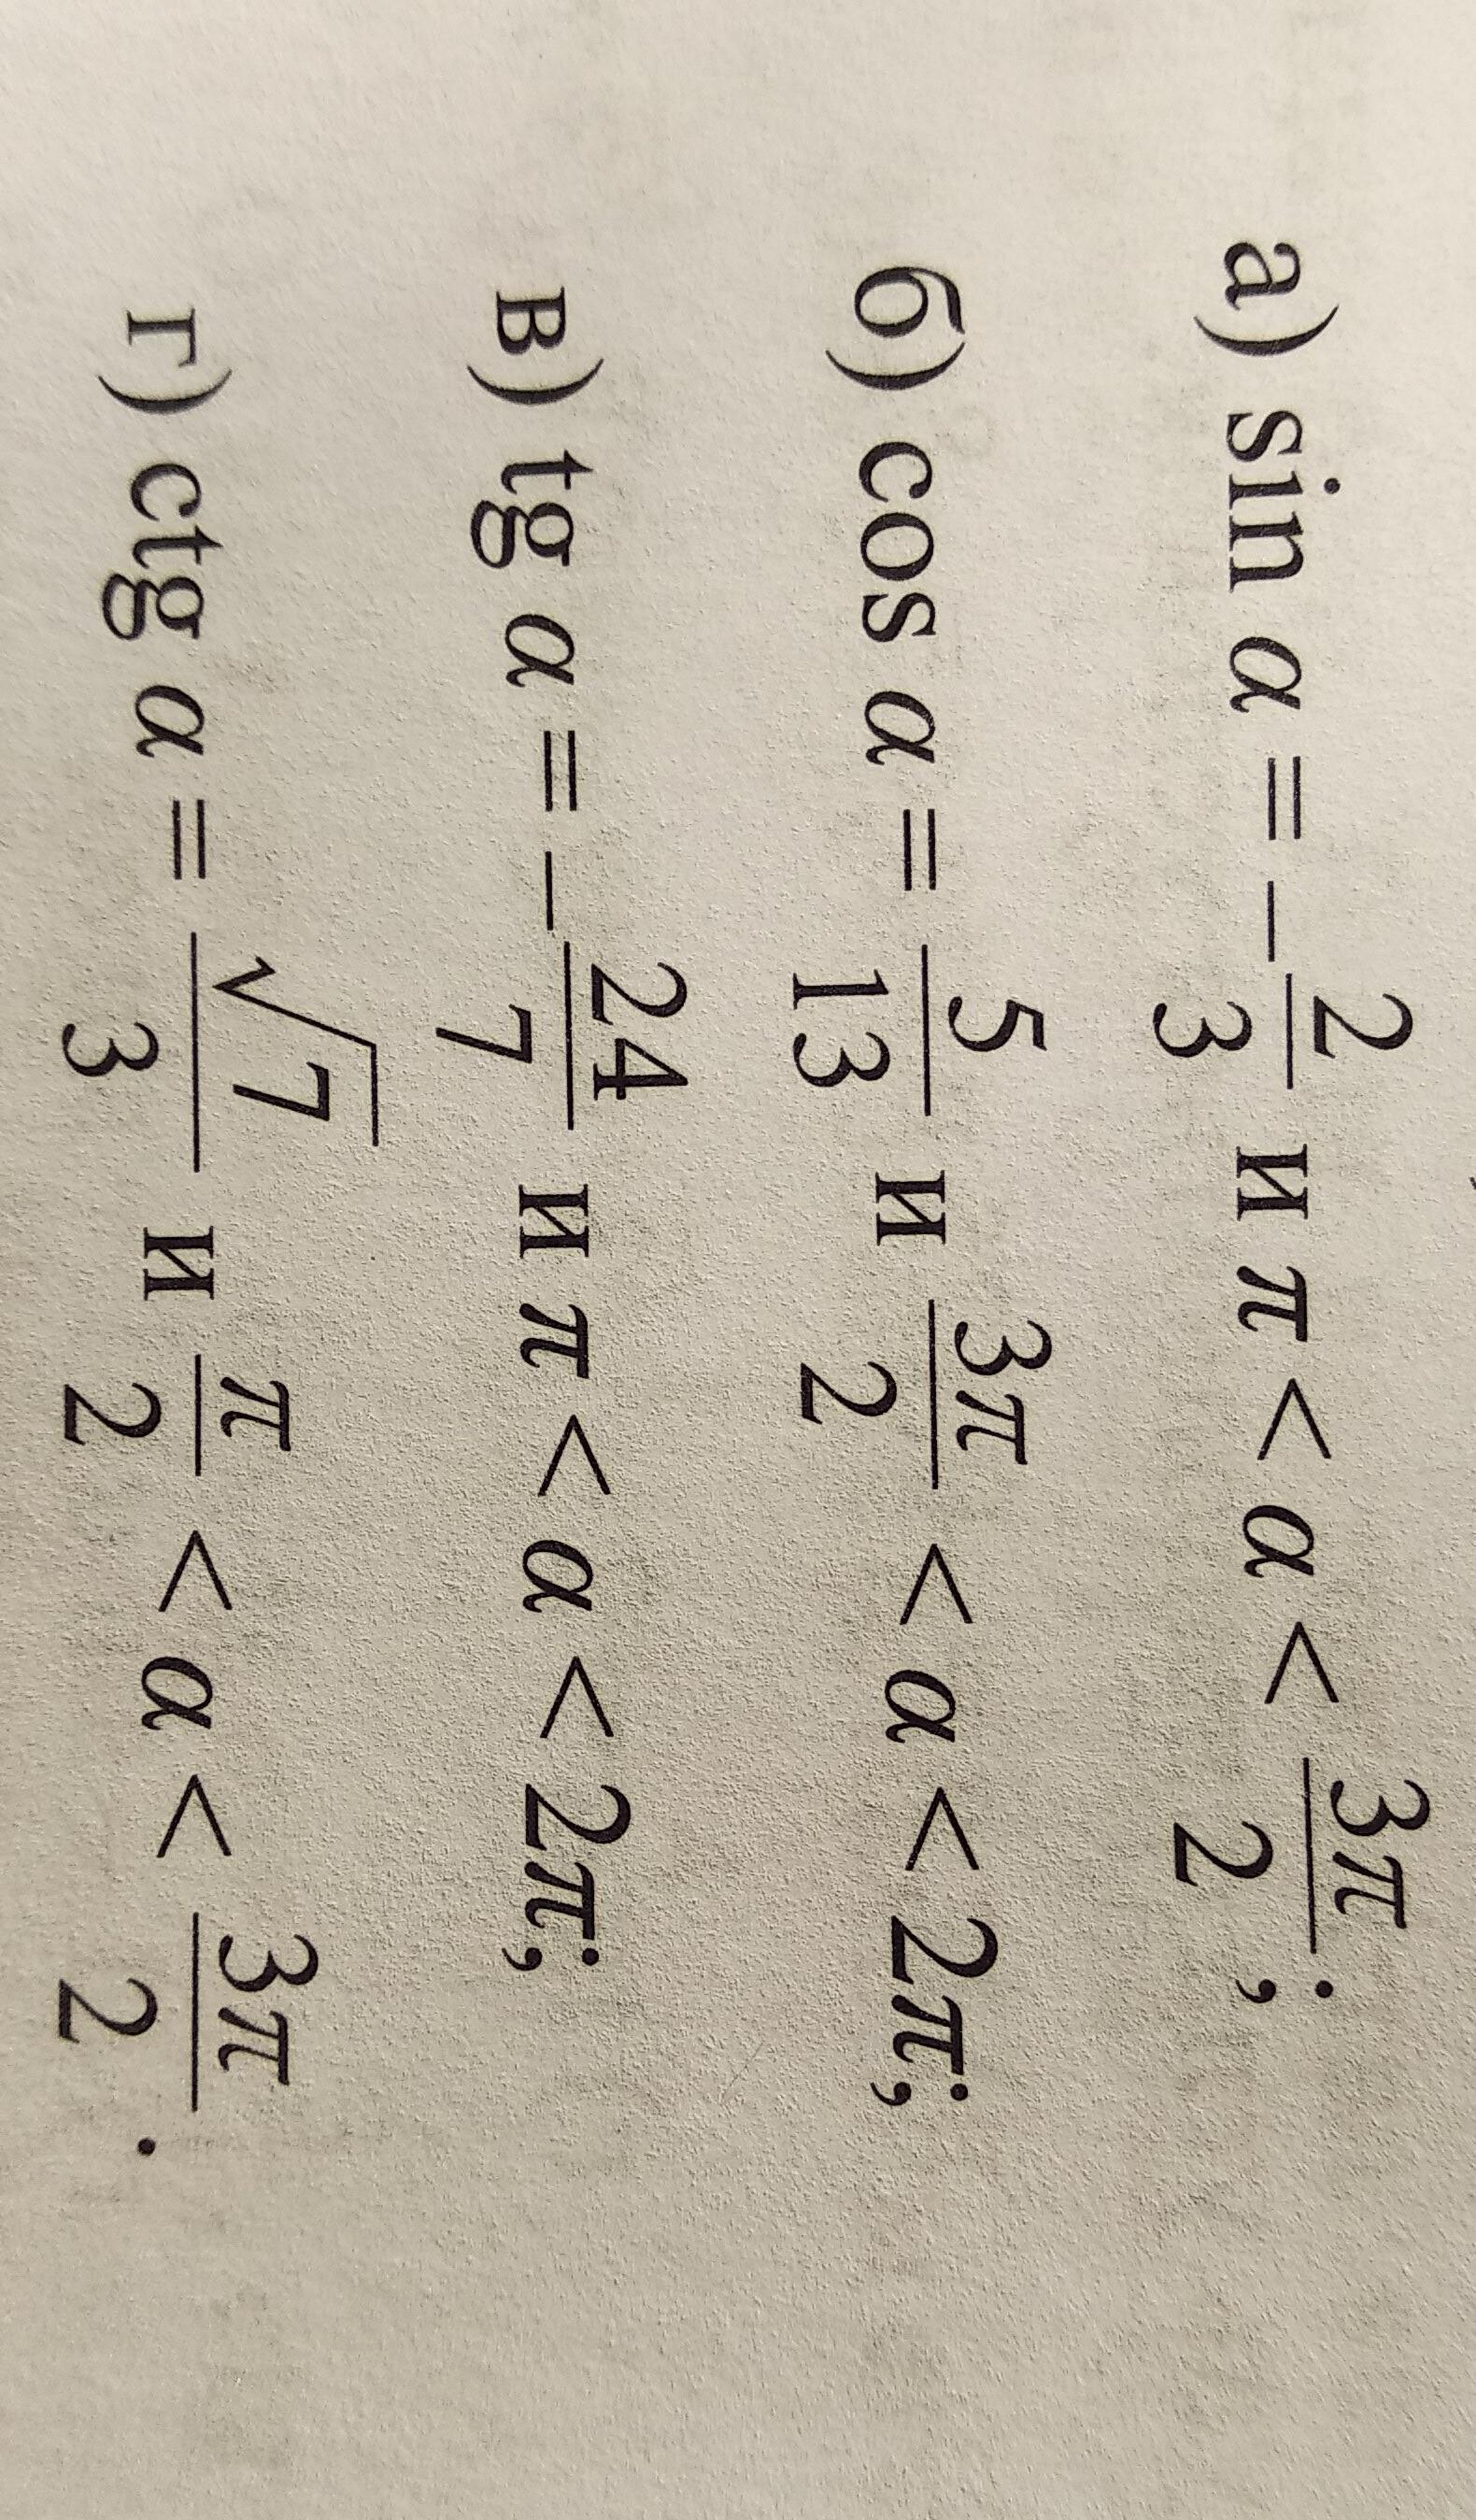 а) sin α = −2/3 и π < α < 3π/2;
б) cos α = 5/13 и 3π/2 < α < 2π;
в) tg α = −24/7 и π < α < 2π;
г) ctg α = √7/3 и π/2 < α < 3π/2.